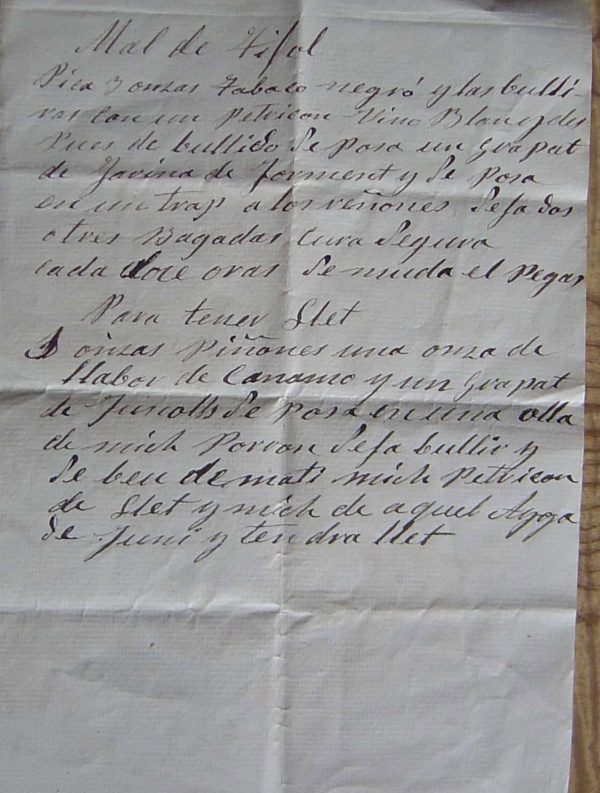 Mal de Fifol
Pica 3 onzas Tabaco negró y las bulli-
ras con un Petricon Vino Blanc y des
Pues de bullido se Posa un Grapat
de Farina de Forment y se Posa
en un trap a los riñones se fa dos
o tres Bagadas Cura Segura
cada doce oras se muda el Pegat
Para tener Llet
3 onzas Piñones una onza de
llabor de Canamo y un Grapat
de Funolls se Posa en una olla
de mich Porron se fa bullir y
se beu de mati mich Petricon
de Llet y mich de aquel Aygga
de Juni y tendra llet